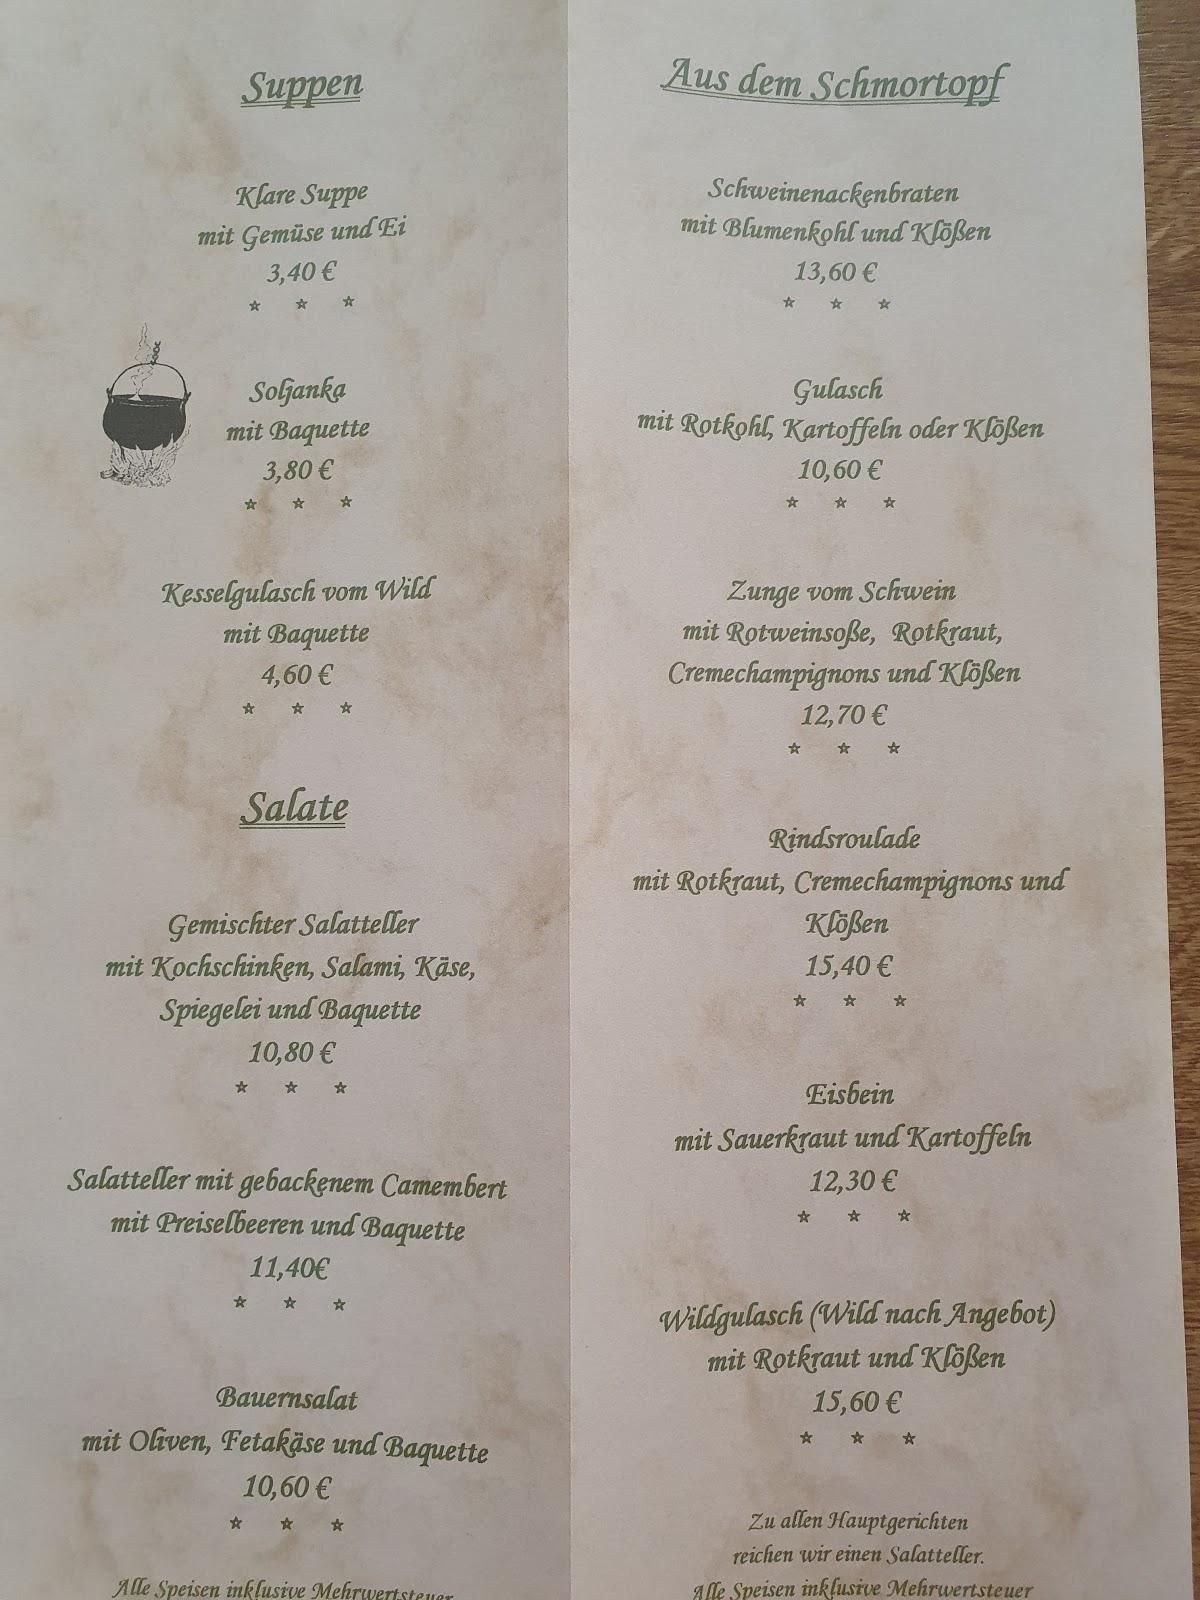 Suppen
Klare Suppe
mit Gemüse und Ei
3,40 €
Soljanka
mit Baquette
3,80 €
Kesselgulasch vom Wild
mit Baquette
4,60 €
Salate
Gemischter Salatteller
mit Kochschinken, Salami, Käse,
Spiegelei und Baquette
10,80 €
Salatteller mit gebackenem Camembert
mit Preiselbeeren und Baquette
11,40€
Bauernsalat
mit Oliven, Fetakäse und Baquette
10,60 €
Alle Speisen inklusive Mehrwertsteuer
Aus dem Schmortopf
Schweinenackenbraten
mit Blumenkohl und Klößen
13,60 €
Gulasch
mit Rotkohl, Kartoffeln oder Klößen
10,60 €
Zunge vom Schwein
mit Rotweinsoße, Rotkraut,
Cremechampignons und Klößen
12,70 €
Rindsroulade
mit Rotkraut, Cremechampignons und
Klößen
15,40 €
Eisbein
mit Sauerkraut und Kartoffeln
12,30 €
Wildgulasch (Wild nach Angebot)
mit Rotkraut und Klößen
15,60 €
Zu allen Hauptgerichten
reichen wir einen Salatteller.
Alle Speisen inklusive Mehrwertsteuer